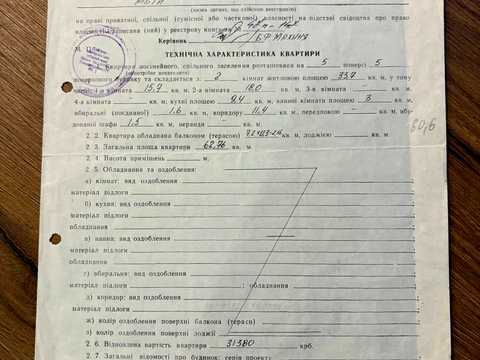 (назва органу, що здійснив реєстрацію)
на праві приватної, спільної (сумісної або часткової) власності на підставі свідоцтва про право
в реєстрову книгу
Керівник
М. П.
ТЕХНІЧНА ХАРАКТЕРИСТИКА КВАРТИРИ
Квартира посімейного, спільного заселення розташована на 5 поверсі 5
поверхового будинку та складається з 2 кімнат житловою площею 33,7 кв. м, у тому
1-а кімната 15,7 кв. м, 2-а кімната 18,0 кв. м, 3-я кімната - кв. м,
4-а кімната - кв. м, кухні площею 9,4 кв. м, ванної кімнати площею 3 кв. м,
вбиральні (поєднаної) 1.6 кв. м, коридору 11,4 кв. м, передпокою - кв. м, вбу-
дованої шафи 1.5 кв. м, веранди кв. м.
60,6
2. 2. Квартира обладнана балконом (терасою) кв. м, лоджією кв. м.
2. 3. Загальна площа квартири 62,76 кв. м.
2. 4. Висота приміщень м.
2. 5. Обладнання та оздоблення:
а) кімнат: вид оздоблення
матеріал підлоги
б) кухня: вид оздоблення
матеріал підлоги
обладнання
в) ванна: вид оздоблення
матеріал підлоги
обладнання
г) вбиральня: вид оздоблення
матеріал підлоги ; обладнання
д) коридор: вид оздоблення
матеріал підлоги
ж) колір оздоблення поверхні балкона (тераси)
з) колір оздоблення поверхні лоджії
2. 6. Відновлена вартість квартири 31380 крб.
2. 7. Загальні відомості про будинок: серія проекту: